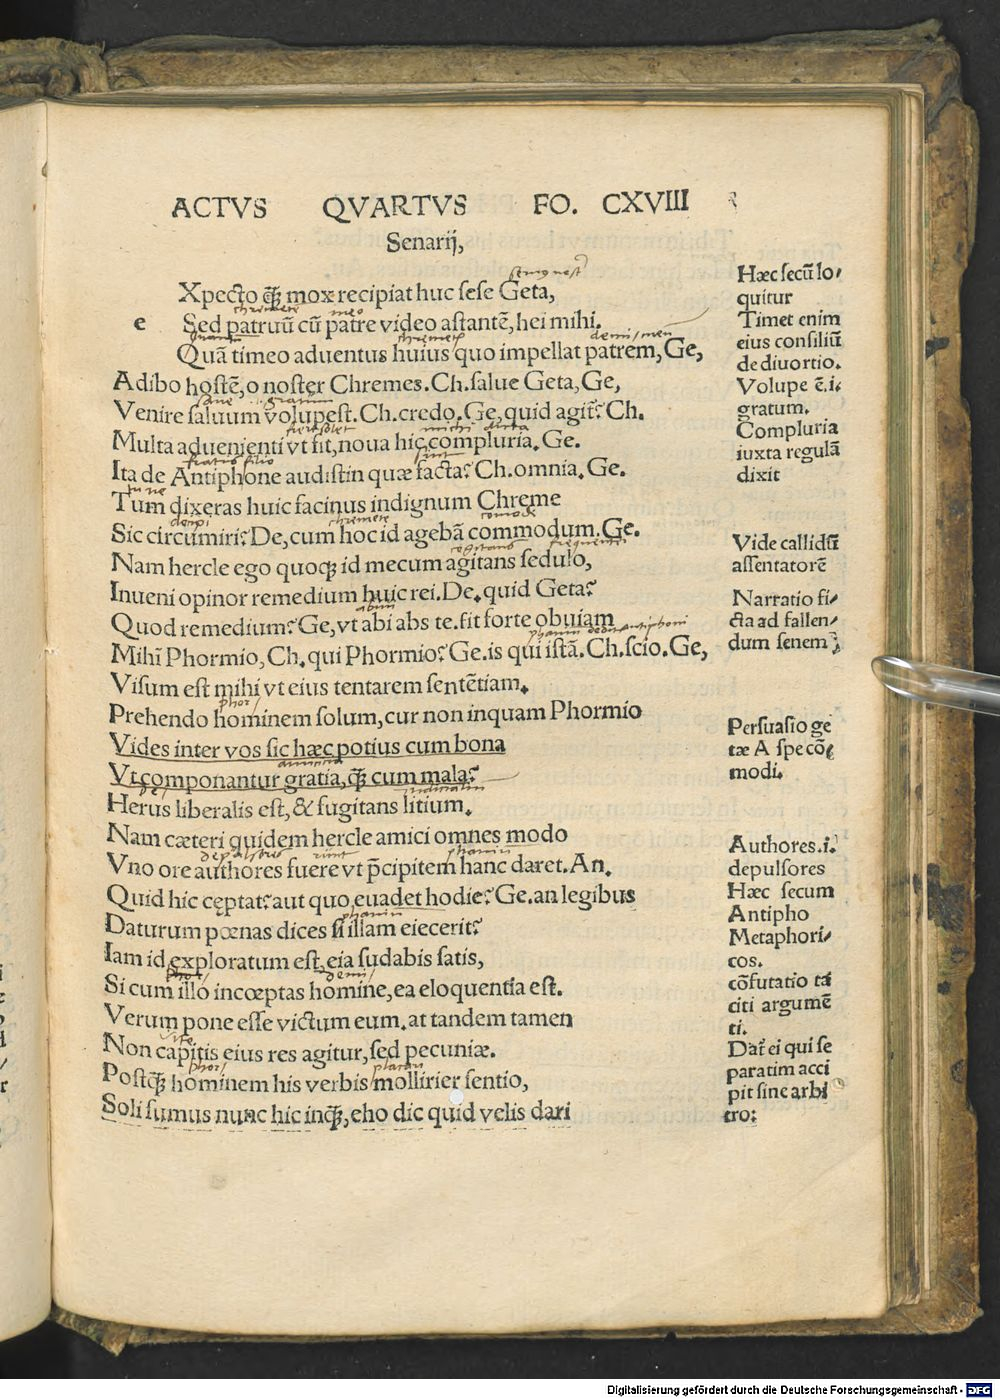 ACTVS QVARTVS FO. CXVIII
Senarij,
e Xpecto q̃ mox recipiat huc sese Geta,
Sed patruũ cũ patre video astantẽ, hei mihi.
Quã timeo aduentus huius quo impellat patrem, Ge,
Adibo hostẽ, o noster Chremes. Ch. salue Geta, Ge,
Venire saluum volupest. Ch. credo. Ge, quid agit? Ch.
Multa aduenienti vt fit, noua hic compluria. Ge.
Ita de Antiphone audistin quæ facta? Ch. omnia. Ge.
Tum dixeras huic facinus indignum Chreme
Sic circumiri? De, cum hoc id agebã commodum. Ge.
Nam hercle ego quoq; id mecum agitans sedulo,
Inueni opinor remedium huic rei. De. quid Geta?
Quod remedium? Ge, vt abi abs te. fit forte obuiam
Mihi Phormio, Ch. qui Phormio? Ge. is qui istã. Ch. scio. Ge,
Visum est mihi vt eius tentarem sentẽtiam.
Prehendo hominem solum, cur non inquam Phormio
Vides inter vos sic hæc potius cum bona
Vt componantur gratia, q̃ cum mala?
Herus liberalis est, & fugitans litium.
Nam cæteri quidem hercle amici omnes modo
Vno ore authores fuere vt p̄cipitem hanc daret. An.
Quid hic cęptat? aut quo euadet hodie? Ge. an legibus
Daturum pœnas dices si illam eiecerit?
Iam id exploratum est, eia sudabis satis,
Si cum illo incœptas homine, ea eloquentia est.
Verum pone esse victum eum. at tandem tamen
Non capitis eius res agitur, sed pecuniæ.
Postq̃ hominem his verbis mollirier sentio,
Soli sumus nunc hic inq̃, eho dic quid velis dari
Hæc secũ lo/
quitur
Timet enim
eius consiliũ
de diuortio.
Volupe ẽ. i.
gratum.
Compluria
iuxta regulã
dixit
Vide callidũ
assentatorẽ
Narratio fi/
cta ad fallen/
dum senem
Persuasio ge
tæ A spe cõ
modi.
Authores. i.
depulsores
Hæc secum
Antipho
Metaphori/
cos.
cõfutatio ta
citi argumẽ
ti.
Dat̃ ei qui se
paratim acci
pit sine arbi
tro:
Digitalisierung gefördert durch die Deutsche Forschungsgemeinschaft - DFG